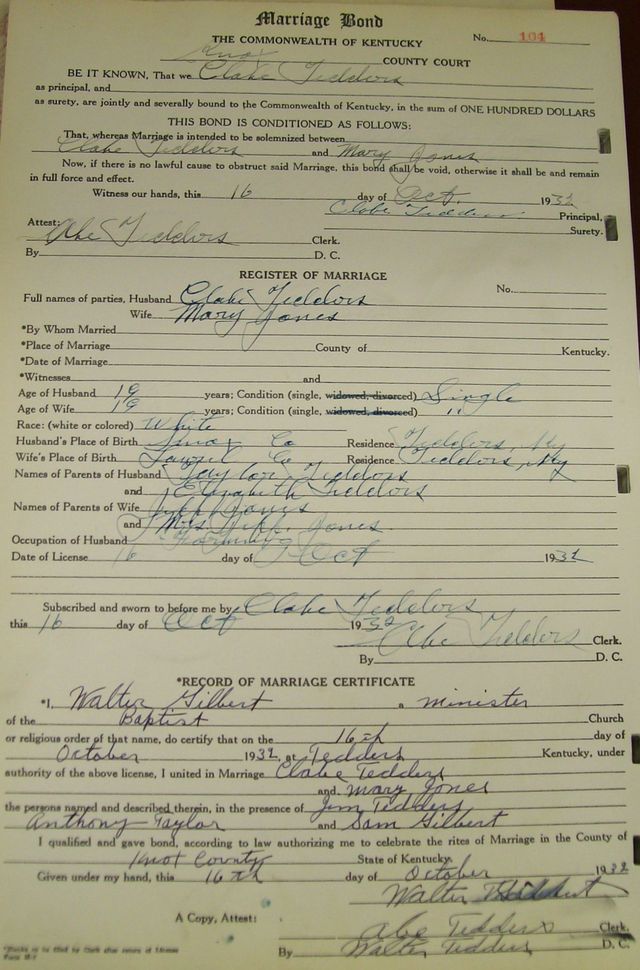 Marriage Bond
THE COMMONWEALTH OF KENTUCKY No. 104
Knox COUNTY COURT
BE IT KNOWN, That we Clabe Tedders
as principal, and
as surety, are jointly and severally bound to the Commonwealth of Kentucky, in the sum of ONE HUNDRED DOLLARS
THIS BOND IS CONDITIONED AS FOLLOWS:
That, whereas Marriage is intended to be solemnized between
Clabe Tedders and Mary Jones
Now, if there is no lawful cause to obstruct said Marriage, this bond shall be void, otherwise it shall be and remain
in full force and effect.
Witness our hands, this 16 day of Oct. 1932
Clabe Tedders Principal,
Surety.
Attest:
Abe Tedders Clerk.
By D. C.
REGISTER OF MARRIAGE
Full names of parties, Husband Clabe Tedders No.
Wife Mary Jones
*By Whom Married
*Place of Marriage County of Kentucky.
*Date of Marriage
*Witnesses and
Age of Husband 19 years; Condition (single, widowed, divorced) Single
Age of Wife 19 years; Condition (single, widowed, divorced) "
Race: (white or colored) White
Husband's Place of Birth Knox Co Residence Tedders, Ky
Wife's Place of Birth Laurel Co Residence Tedders, Ky
Names of Parents of Husband Taylor Tedders
and Elizabeth Tedders
Names of Parents of Wife Jeff Jones
and Mrs. Jeff Jones
Occupation of Husband Farming
Date of License 16 day of Oct 1932
Subscribed and sworn to before me by Clabe Tedders
this 16 day of Oct 1932
Abe Tedders Clerk.
By D. C.
*RECORD OF MARRIAGE CERTIFICATE
*I, Walter Gilbert a minister
of the Baptist Church
or religious order of that name, do certify that on the 16th day of
October 1932, at Tedders Kentucky, under
authority of the above license, I united in Marriage Clabe Tedders
and Mary Jones
the persons named and described therein, in the presence of Jim Tedders
Anthony Taylor and Sam Gilbert
I qualified and gave bond, according to law authorizing me to celebrate the rites of Marriage in the County of
Knox County State of Kentucky.
Given under my hand, this 16th day of October 1932
Walter
A Copy, Attest: Abe Tedders Clerk.
By Walter Tedders D. C.